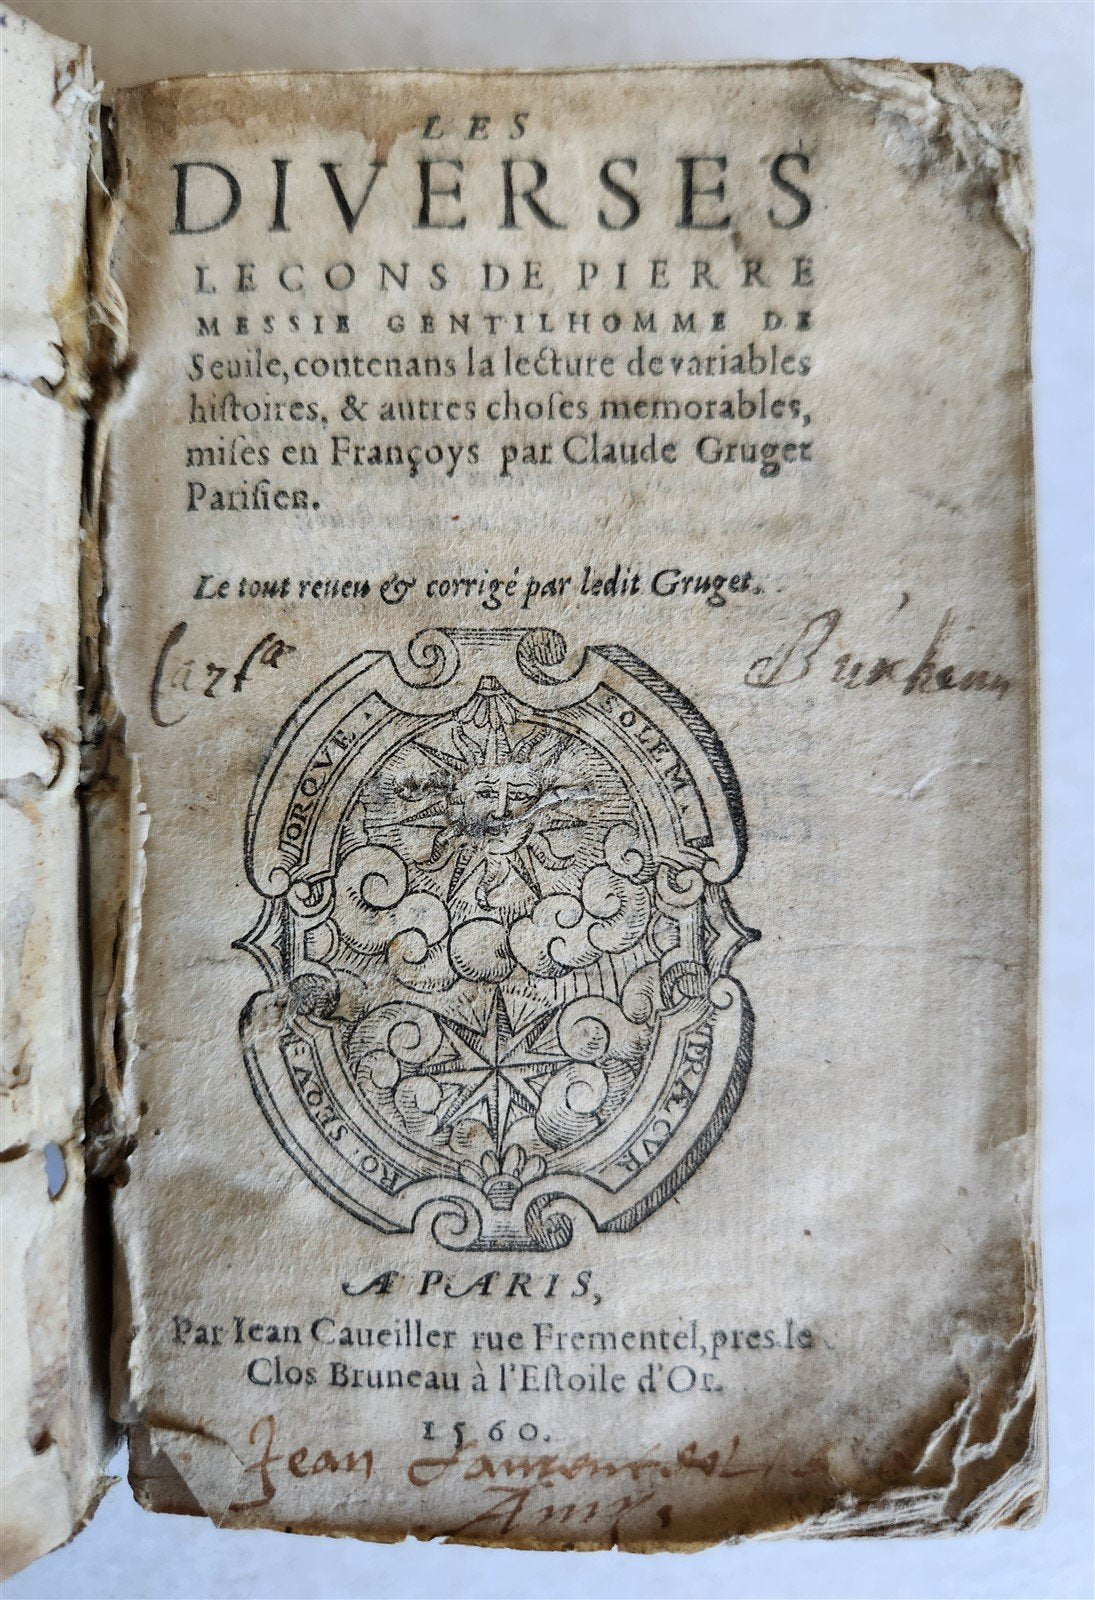 LES
DIVERSES
LECONS DE PIERRE
MESSIE GENTILHOMME DE
Seuile, contenans la lecture de variables
histoires, & autres choses memorables,
mises en Françoys par Claude Gruget
Parisien.
Le tout reueu & corrigé par ledit Gruget.
IORQVE
SOLEM
RO SEQVE
PRÆCVR
A PARIS,
Par Iean Caueiller rue Frementel, pres le
Clos Bruneau à l'Estoile d'Or.
1560.
Jean